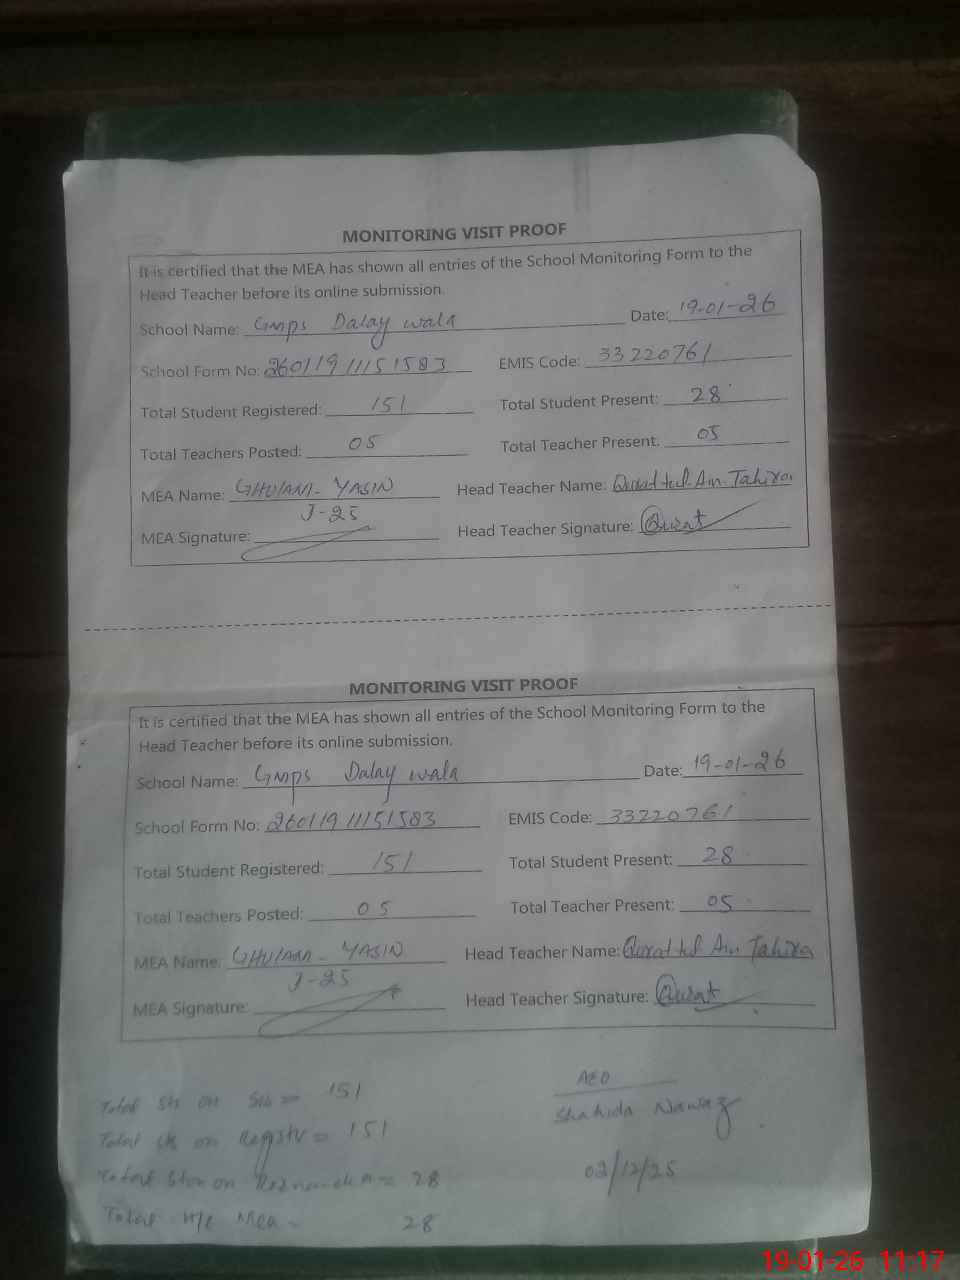 MONITORING VISIT PROOF
It is certified that the MEA has shown all entries of the School Monitoring Form to the
Head Teacher before its online submission.
School Name: Gmps Dalay wala Date: 19-01-26
School Form No: 26011911151583 EMIS Code: 33220761
Total Student Registered: 151 Total Student Present: 28
Total Teachers Posted: 05 Total Teacher Present. 05
MEA Name: GHULAM-YASIN Head Teacher Name: Qurat tul Ain Tahira
J-25
MEA Signature: Head Teacher Signature: Qurat
MONITORING VISIT PROOF
It is certified that the MEA has shown all entries of the School Monitoring Form to the
Head Teacher before its online submission.
School Name: Gmps Dalay wala Date: 19-01-26
School Form No: 26011911151583 EMIS Code: 33220761
Total Student Registered: 151 Total Student Present: 28
Total Teachers Posted: 05 Total Teacher Present: 05
MEA Name: GHULAM-YASIN Head Teacher Name: Qurat tul Ain Tahira
J-25
MEA Signature: Head Teacher Signature: Qurat
Total on = 151
AEO
Shahida Nawaz
Total on = 151
02/12/25
Total on = 28
Total Mea - 28
19-01-26 11:17